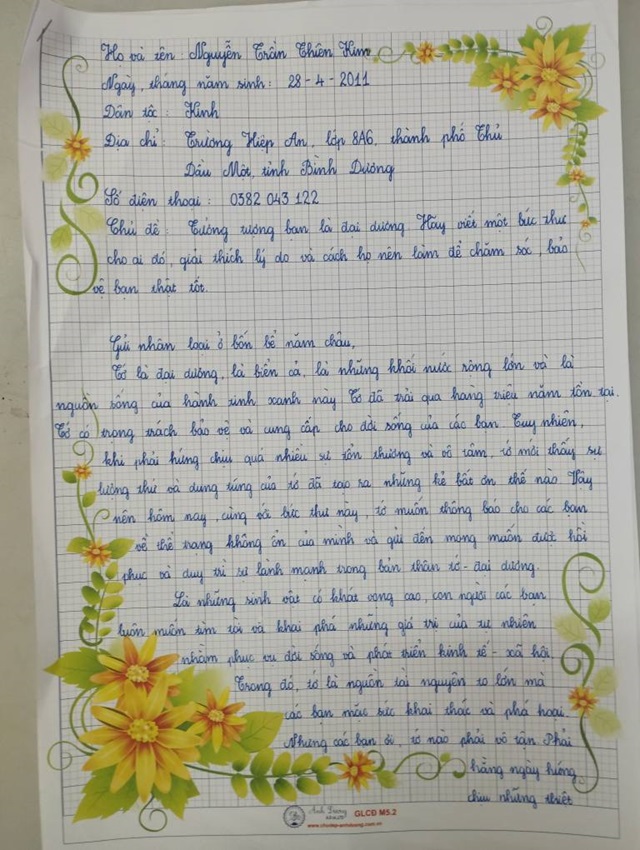 Họ và tên : Nguyễn Trần Thiên Kim
Ngày, tháng năm sinh : 28 - 4 - 2011
Dân tộc : Kinh
Địa chỉ : Trường Hiệp An, lớp 8A6, thành phố Thủ
Dầu Một, tỉnh Bình Dương
Số điện thoại : 0382 043 122
Chủ đề : Tưởng tượng bạn là đại dương. Hãy viết một bức thư
cho ai đó, giải thích lý do và cách họ nên làm để chăm sóc, bảo
vệ bạn thật tốt.
Gửi nhân loại ở bốn bể năm châu,
Tớ là đại dương, là biển cả, là những khối nước rộng lớn và là
nguồn sống của hành tinh xanh này. Tớ đã trải qua hàng triệu năm tồn tại.
Tớ có trọng trách bảo vệ và cung cấp cho đời sống của các bạn. Tuy nhiên,
khi phải hứng chịu quá nhiều sự tổn thương và vô tâm, tớ mới thấy sự
tương thư và dung túng của tớ đã tạo ra những kẻ bất ơn thế nào. Vậy
nên hôm nay, cùng với bức thư này, tớ muốn thông báo cho các bạn
về thể trạng không ổn của mình và gửi đến mong muốn được hồi
phục và duy trì sự lành mạnh trong bản thân tớ - đại dương.
Là những sinh vật có khát vọng cao, con người các bạn
luôn muốn tìm tòi và khai phá những giá trị của tự nhiên
nhằm phục vụ đời sống và phát triển kinh tế - xã hội.
Trong đó, tớ là nguồn tài nguyên to lớn mà
các bạn mặc sức khai thác và phá hoại.
Nhưng các bạn ơi, tớ nào phải vô tận. Phải
hằng ngày hứng
chịu những thiệt
Ánh Dương
GLCD M5.2
www.chudep-anhduong.com.vn